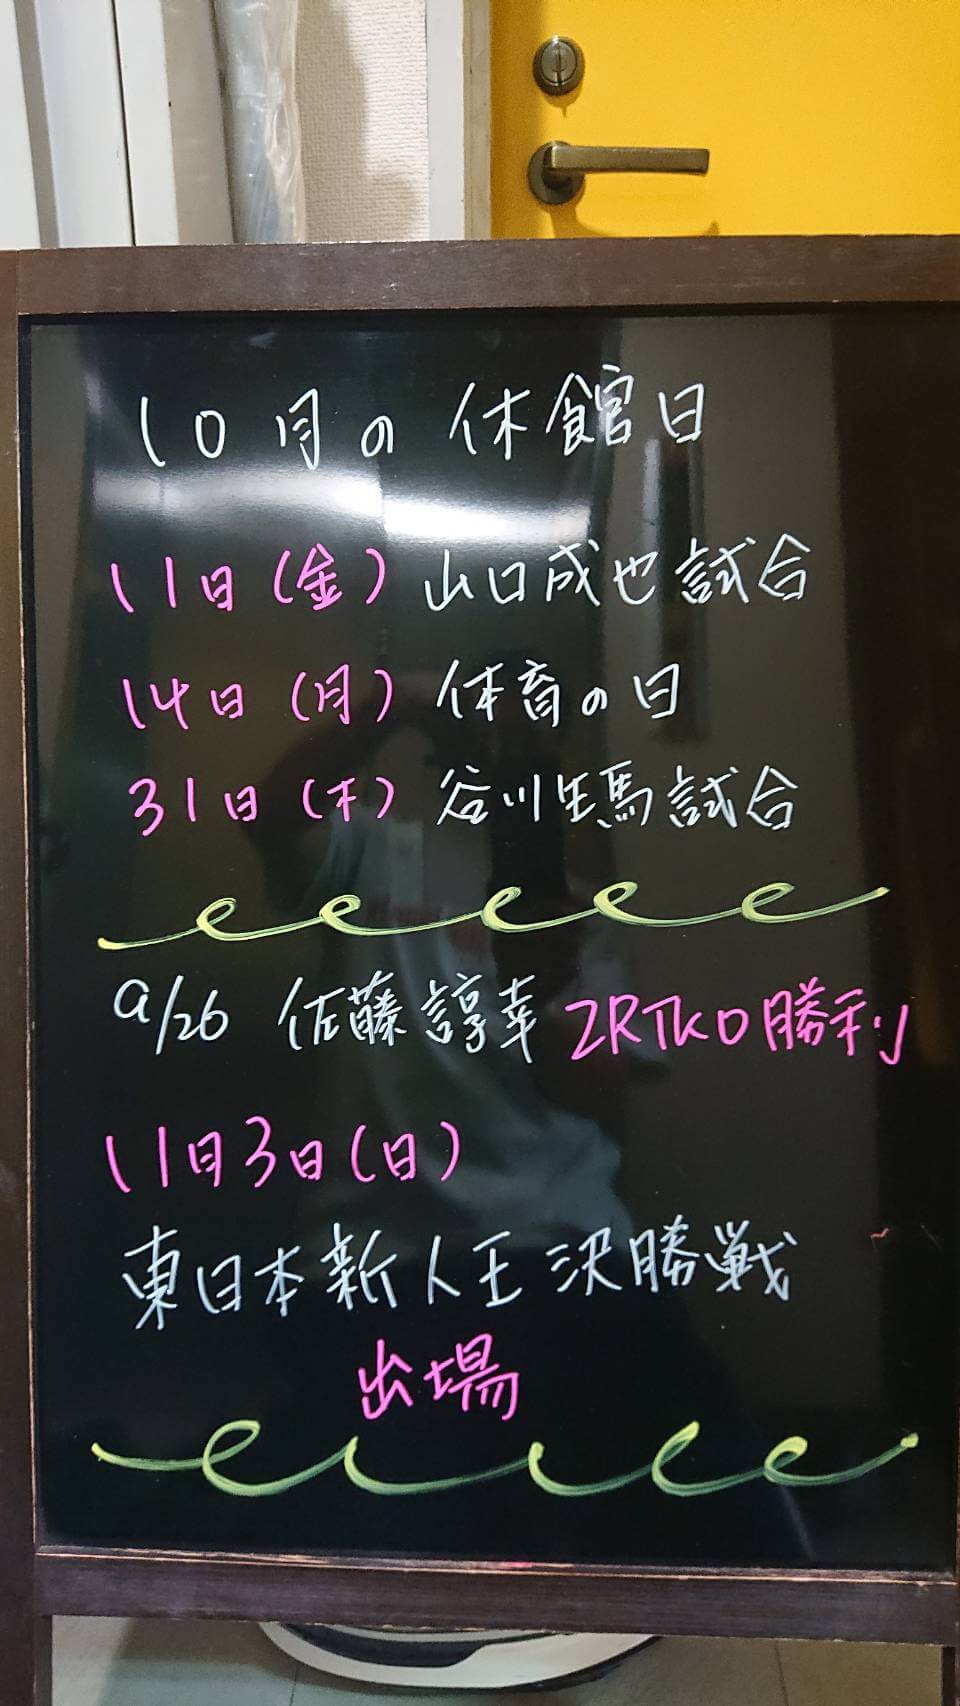 10月の休館日
11日(金)山口成也試合
14日(月)体育の日
31日(木)谷川生馬試合
9/26 佐藤諄幸 2RTKO勝利
11月3日(日)
東日本新人王決勝戦
出場